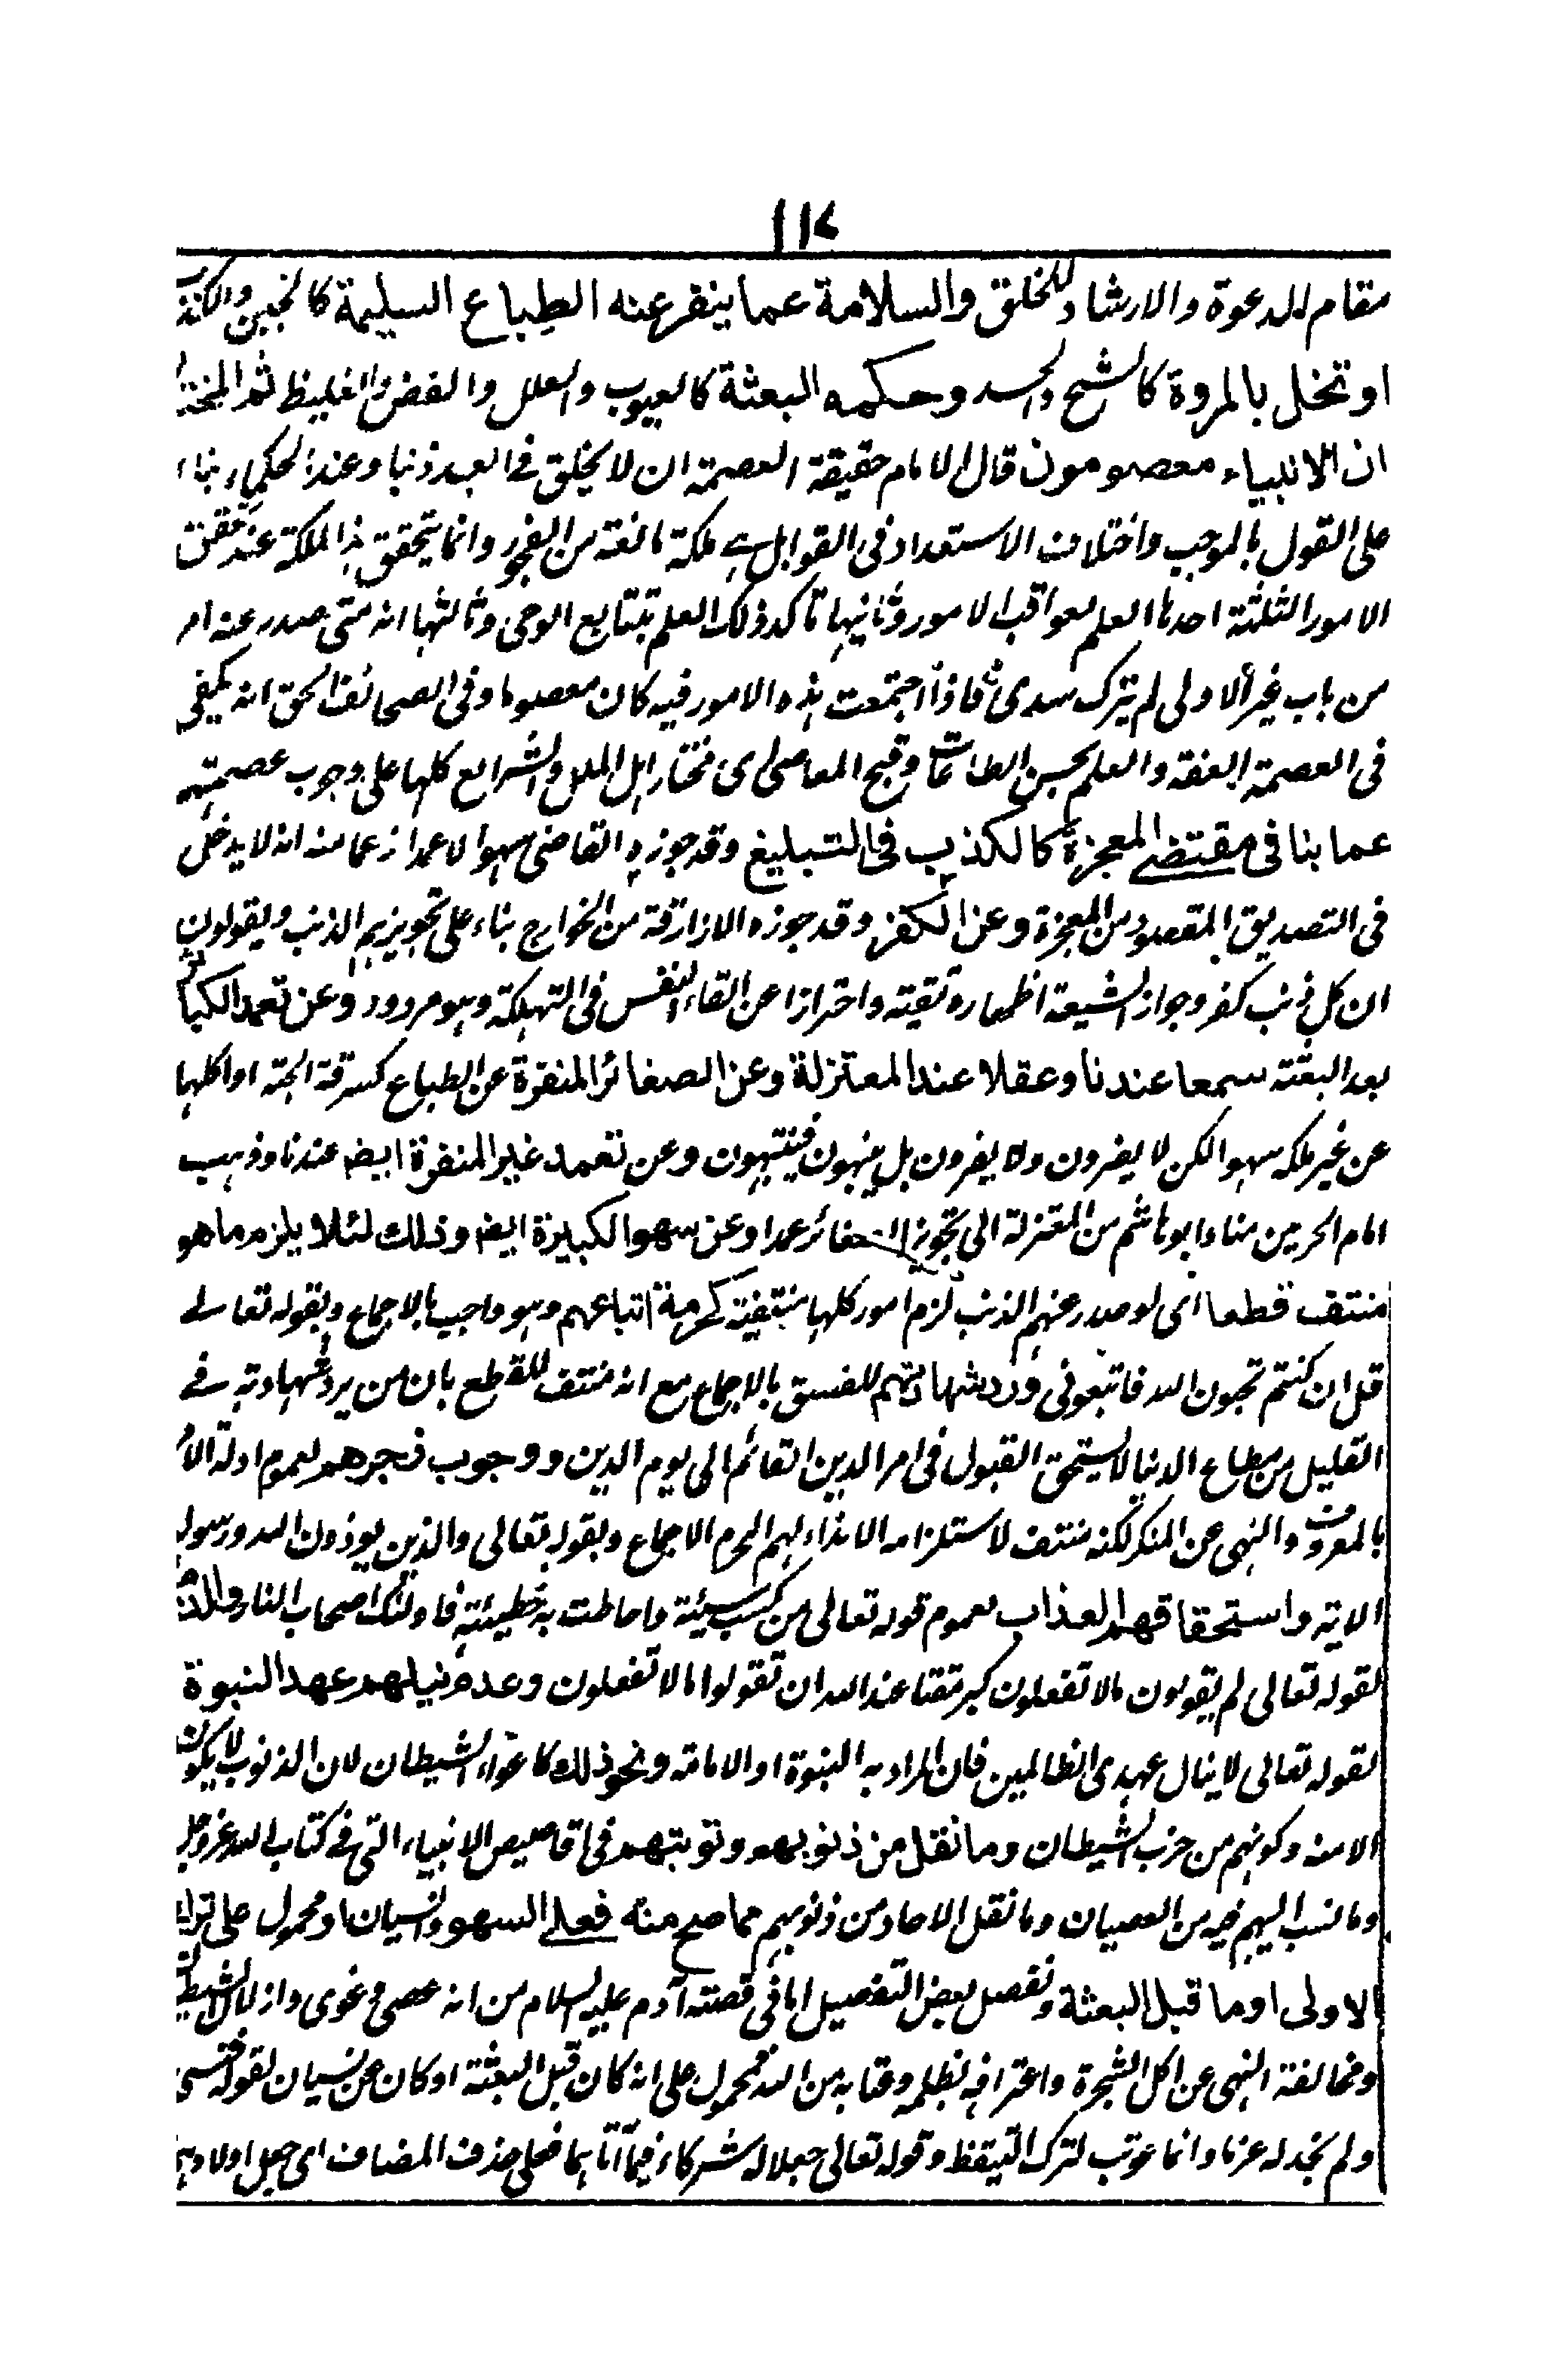 ١١٧
مقام الدعوة والارشاد للخلق والسلامة عما ينفر عنه الطباع السليمة كالجبن والكذب
او تخل بالمروة كالشح والحسد وحكمه البعثة كالعيوب والعلل والفض والغليظ ثم المختار
ان الانبياء معصومون قال الامام حقيقة العصمة ان لا يخلق فى العبد ذنبا وعند الحكماء بناء
على القول بالموجب واختلاف الاستعداد فى القوابل هے ملكة مانعة من الفجور وانما يتحقق هذا الملكة عند تحقق
الامور الثلثة احدها العلم بعواقب الامور وثانيها تاكد ذلك العلم بتتابع الوحى وثالثها انه متى صدر عنه امر
من باب غير الاولى لم يترك سدى فاذا اجتمعت هذه الامور فيه كان معصوما وفى الصحائف الحق انه يكفى
فى العصمة العفة والعلم بحسن الطاعات وقبح المعاصى اى مختار اهل الملل والشرائع كلها على وجوب عصمتهم
عما ينافى مقتضے المعجزة كالكذب فى التبليغ وقد جوزه القاضى سهوا لا عمدا زعما منه انه لا يدخل
فى التصديق المقصود من المعجزة وعن الكفر وقد جوزه الازارقة من الخوارج بناء على تجويزهم الذنب ويقولون
ان كل ذنب كفر وجواز الشيعة اظهاره تقية واحترازا عن القاء النفس فى التهلكة وهو مردود وعن تعمد الكبائر
بعد البعثة سمعا عندنا وعقلا عند المعتزلة وعن الصغائر المنفرة عن الطباع كسرقة الحبة او اكلها
عن غير ملكه سهوا لكن لا يصرون ولا يفرون بل ينبهون فينتهون وعن تعمد غير المنفرة ايضا عندنا وذهب
امام الحرمين منا وابو هاشم من المعتزلة الى تجويز الصغائر عمدا وعن سهو الكبيرة ايضا وذلك لئلا يلزم ما هو
منتف قطعا اى لو صدر عنهم الذنب لزم امور كلها منتفية كحرمة اتباعهم وهو واجب بالاجماع وبقوله تعالى
قل ان كنتم تحبون الله فاتبعونى ورد شهادتهم للفسق بالاجماع مع انه منتف للقطع بان من يرد شهادته فے
القليل من مطاع الدنيا لا يستحق القبول فى امر الدين القائم الى يوم الدين ووجوب زجرهم لعموم ادلة الامر
بالمعروف والنهى عن المنكر لكنه منتف لاستلزامه الايذاء لهم المحرم الاجماع وبقوله تعالى والذين يوذون الله ورسوله
الاية واستحقاقهم العذاب لعموم قوله تعالى من كسب سيئة واحاطت به خطيئته فاولئك اصحاب النار والذم
لقوله تعالى لم يقولون مالا تفعلون كبر مقتا عند الله ان تقولوا مالا تفعلون وعدم نيلهم عهد النبوة
لقوله تعالى لا ينال عهدى الظالمين فان المراد به النبوة او الامامة ونحو ذلك كاغواء الشيطان لان الذنوب لا يكون
الا منه وكونهم من حزب الشيطان وما نقل من ذنوبهم وتوبتهم فى اقاصيص الانبياء التى فے كتاب الله عز وجل
وما نسب اليهم فيه من العصيان وما نقل الاحاد من ذنوبهم مما صح منه فعلے السهو والنسيان او محمول على ترك
الاولى او ما قبل البعثة ونفصل بعض التفصيل اما فى قصته آدم عليه السلام من انه عصى وغوى وازلال الشيطان
ومخالفة النهى عن اكل الشجرة واعترافه بظلمه وعتابه من الله فمحمول على انه كان قبل البعثة او كان عن نسيان لقوله فنسى
ولم نجد له عزما وانما عوتب لترك التيقظ وقوله تعالى جعلا له شركاء فيما آتاهما فعلى حذف المضاف اى جعل اولادهما